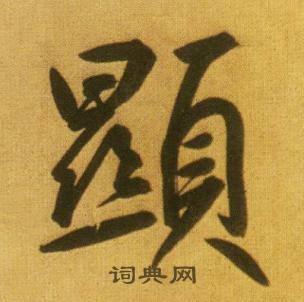 顯
词典网